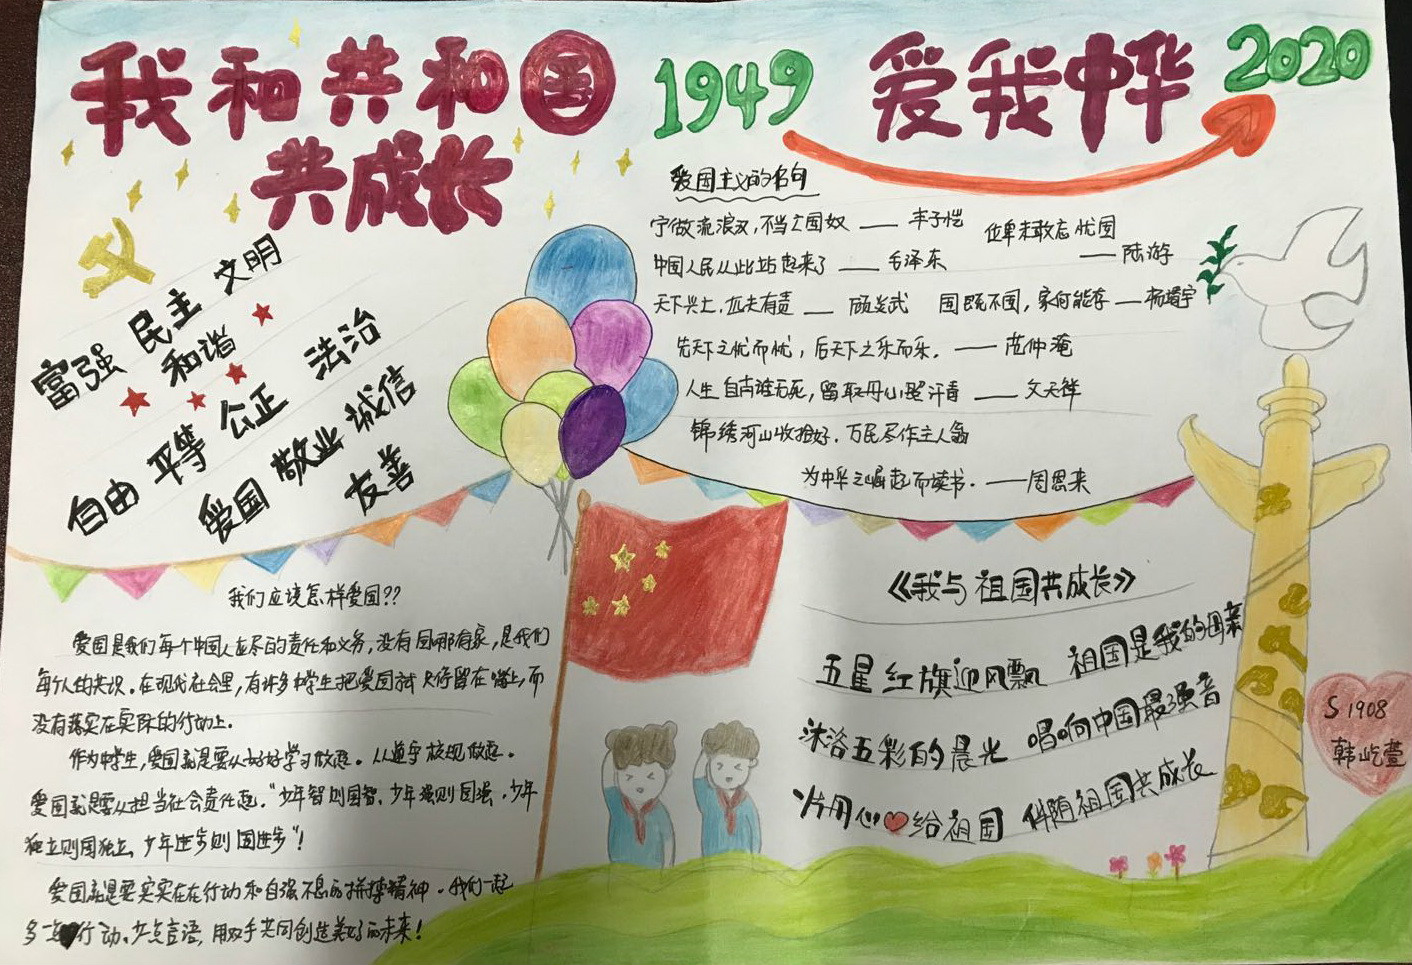 我和共和国
共成长
1949 爱我中华 2020
富强 民主 文明
和谐
自由 平等 公正 法治
爱国 敬业 诚信
友善
爱国主义的名句
宁做流浪汉,不当亡国奴 —— 丰子恺
位卑未敢忘忧国
—— 陆游
中国人民从此站起来了 —— 毛泽东
天下兴亡,匹夫有责 —— 顾炎武
国既不国,家何能存 —— 杨靖宇
先天下之忧而忧,后天下之乐而乐. —— 范仲淹
人生自古谁无死,留取丹心照汗青 —— 文天祥
锦绣河山收拾好,万民尽作主人翁
为中华之崛起而读书. ——周恩来
我们应该怎样爱国??
爱国是我们每个中国人应尽的责任和义务,没有国哪有家,是我们
每个人的共识。在现代社会里,有许多中学生把爱国就只停留在嘴上,而
没有落实在实际的行动上。
作为中学生,爱国就是要从好好学习做起。从遵守校规做起。
爱国就是要从担当社会责任起。"少年智则国智,少年强则国强,少年
独立则国独立,少年进步则国进步"!
爱国就是要实实在在行动和自强不息的拼搏精神。我们一起
多一点行动,少点言语,用双手共同创造美好的未来!
《我与祖国共成长》
五星红旗迎风飘 祖国是我的母亲
沐浴五彩的晨光 唱响中国最强音
一片丹心给祖国 伴随祖国共成长
S1908
韩屹萱